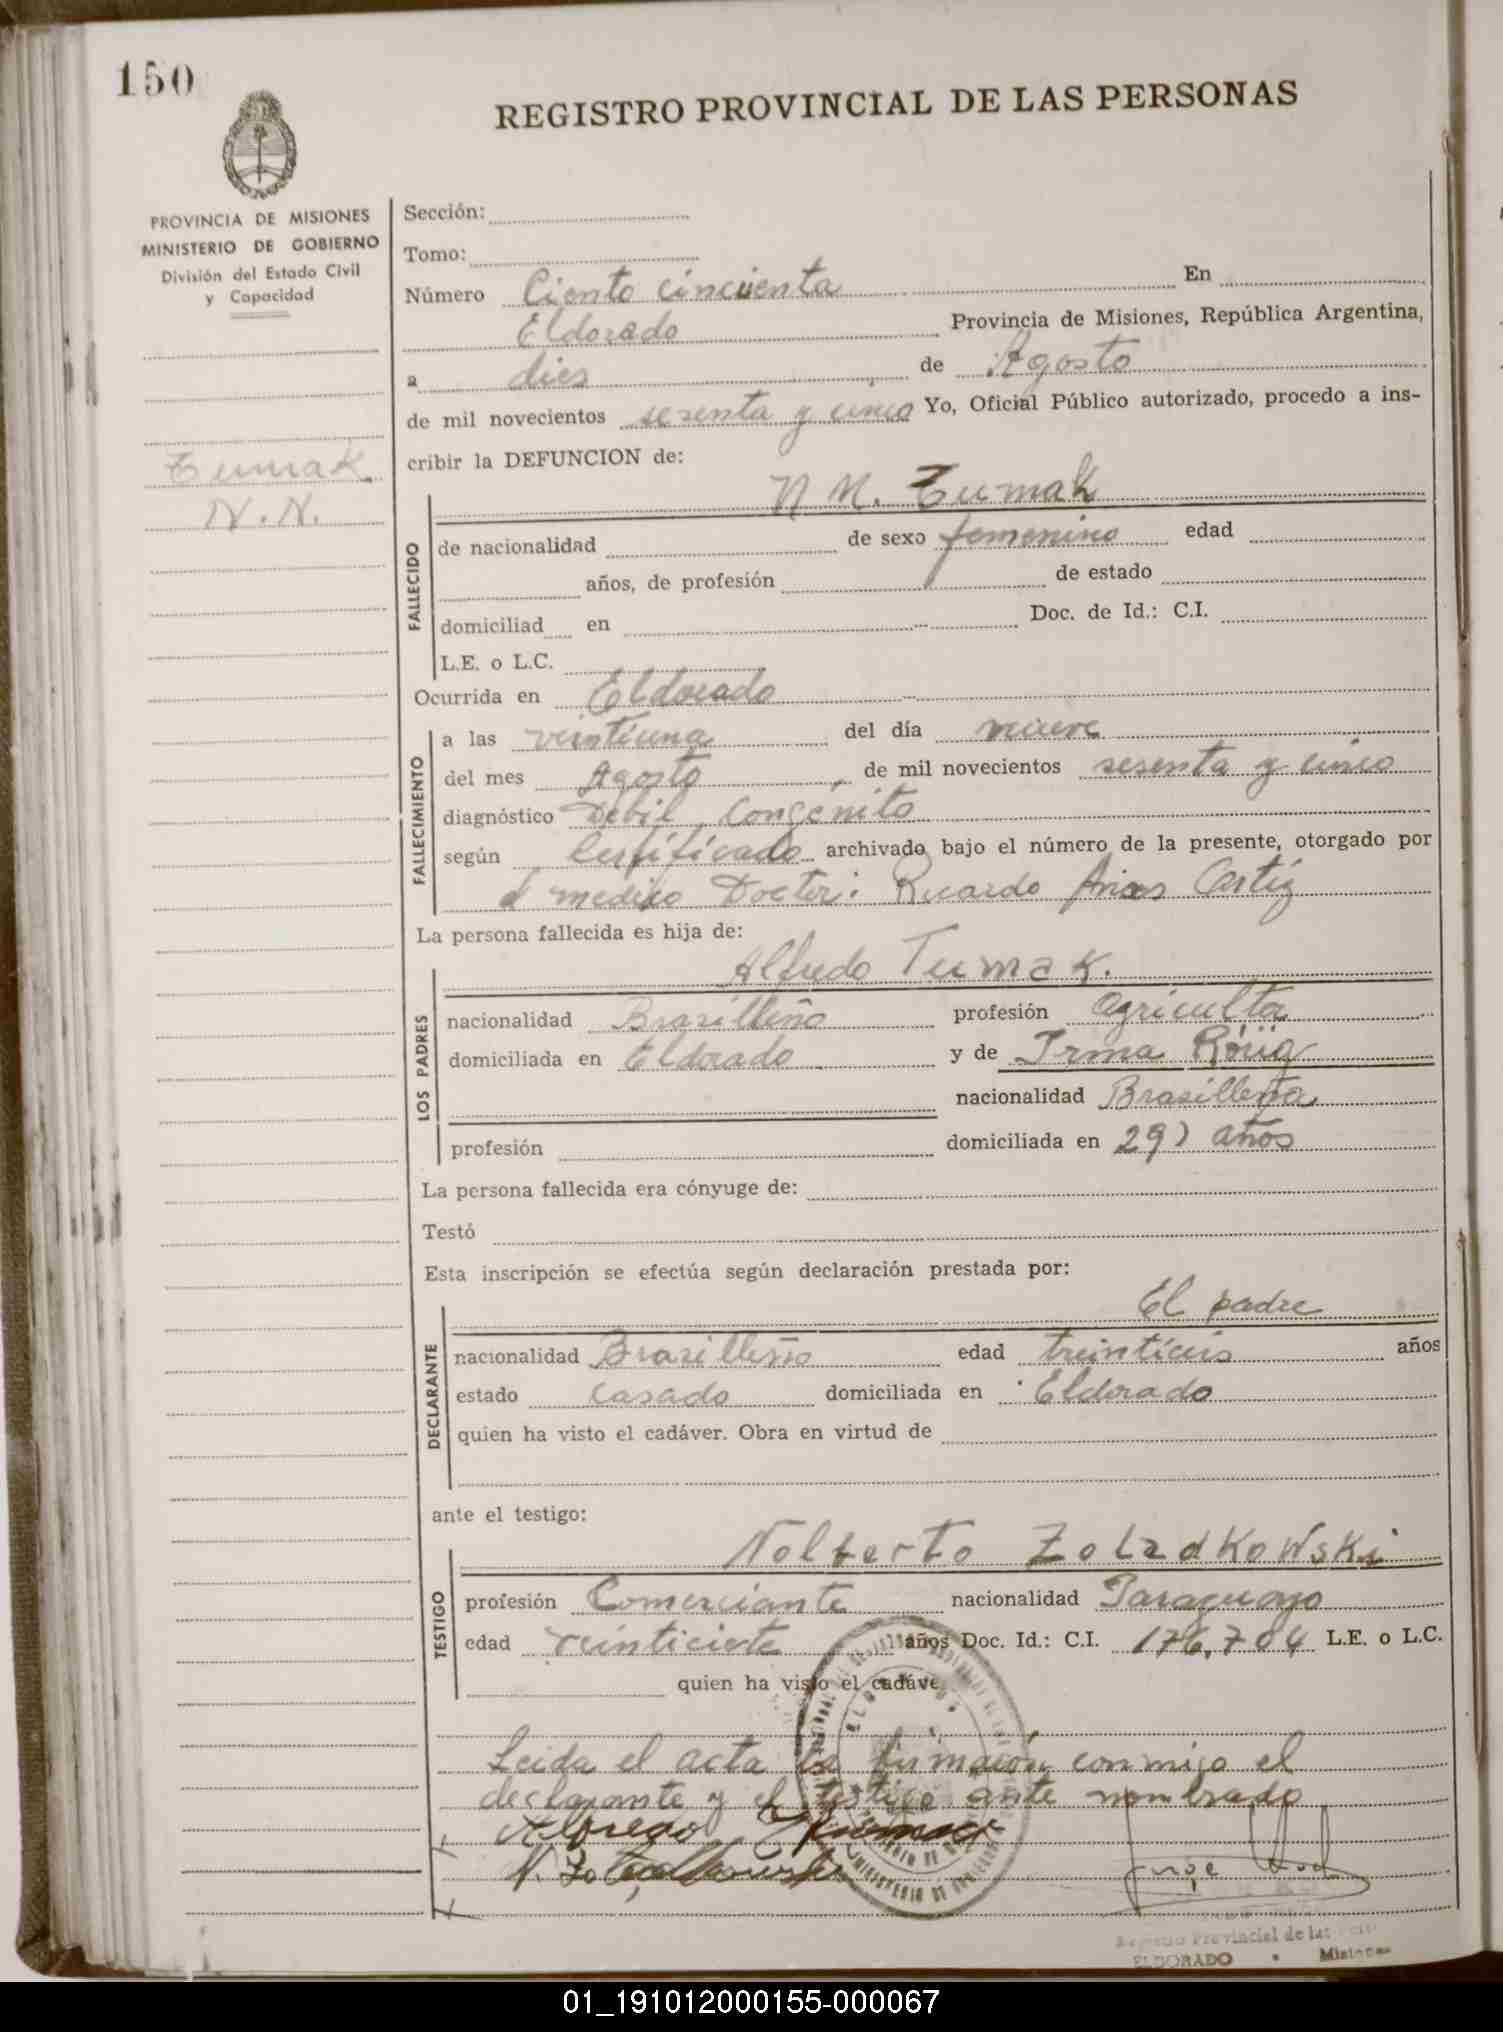 150
REGISTRO PROVINCIAL DE LAS PERSONAS
PROVINCIA DE MISIONES
MINISTERIO DE GOBIERNO
División del Estado Civil
y Capacidad
Tumak
N.N.
Sección:
Tomo:
Número Ciento cincuenta En
Eldorado Provincia de Misiones, República Argentina,
a dies de Agosto
de mil novecientos sesenta y cinco Yo, Oficial Público autorizado, procedo a ins-
cribir la DEFUNCION de:
FALLECIDO
N N. Tumak
de nacionalidad de sexo femenino edad
años, de profesión de estado
domiciliad en Doc. de Id.: C.I.
L.E. o L.C.
Ocurrida en Eldorado
FALLECIMIENTO
a las veintiuna del día nueve
del mes Agosto, de mil novecientos sesenta y cinco
diagnóstico Debil Congénito
según Certificado archivado bajo el número de la presente, otorgado por
el medico Doctor: Ricardo Arias
La persona fallecida es hija de:
LOS PADRES
Alfredo Tumak.
nacionalidad Brasilleño profesión Agriculta
domiciliada en Eldorado y de Irma
nacionalidad Brasilleña
profesión domiciliada en 29) años
La persona fallecida era cónyuge de:
Testó
Esta inscripción se efectúa según declaración prestada por:
DECLARANTE
El padre
nacionalidad Brasilleño edad años
estado casado domiciliada en Eldorado
quien ha visto el cadáver. Obra en virtud de
ante el testigo:
TESTIGO
Nolberto Zoladkowski
profesión Comerciante nacionalidad Paraguayo
edad veinticiete años Doc. Id.: C.I. 176.704 L.E. o L.C.
quien ha visto el cadáve
Leida el acta la firmaron conmigo el
declarante y el testigo ante nombrado
Registro Provincial de las
ELDORADO - Misiones
01_191012000155-000067